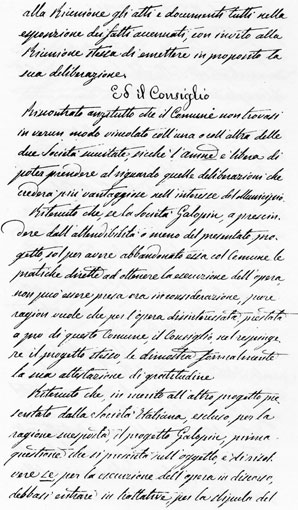 alla Riunione gli atti e documenti tutti nella
esposizione dei fatti accennati, con invito alla
Riunione stessa di emettere in proposito la
sua deliberazione.
Ed il Consiglio
Riscontrato anzitutto che il Comune non trovasi
in verun modo vincolato coll'una o coll'altra delle
due Società succitate, sicché l'anned è libera di
poter prendere al riguardo quelle deliberazioni che
crederà più vantaggiose nell'interesse del Municipio.
Ritenuto che se la Società Galopin, a prescin-
dere dall'attendibilità o meno del presentato pro-
getto, sol per avere abbandonato essa col Comune le
pratiche dirette ad ottenere la esecuzione dell'opera
non può essere presa ora in considerazione, pure
ragion vuole che per l'opera disinteressata prestata
a pro di questo Comune, il Consiglio nel respinge-
re il progetto stesso, le dimostri formalmente
la sua attestazione di gratitudine
Ritenuto che, in merito all'altro progetto pre-
sentato dalla Società Italiana, escluso per la
ragione suesposta, il progetto Galopin, prima
questione che si presenta sull'oggetto, è di risol-
vere se per la esecuzione dell'opera in discorso,
debbasi entrare in trattative, per la stipula del